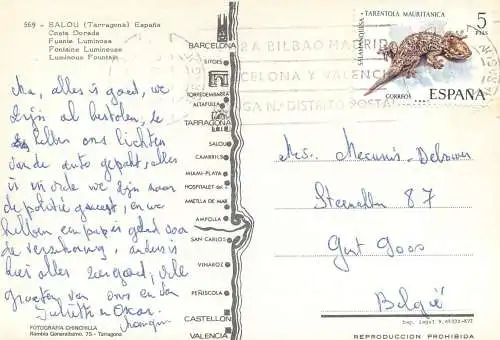 569 - SALOU (Tarragona) España
Costa Dorada
Fuente Luminosa
Fontaine Lumineuse
Luminous Fountain
Ma, alles is goed, we
zijn al bestolen, ze
hebben ons lichten
van de auto gepakt, alles
is in orde we zijn naar
de politie geweest, en we
hebben een papier
de verzekering, anders is
hier alles zeer goed, vele
groeten van ons en van
Juliette en Oscar
FOTOGRAFIA CHINCHILLA
Rambla Generalísimo, 75 - Tarragona
BARCELONA
SITGES
TORREDEMBARRA
ALTAFULLA
TARRAGONA
SALOU
CAMBRILS
MIAMI-PLAYA
HOSPITALET del I.
AMETLLA DE MAR
AMPOLLA
SAN CARLOS
VINAROZ
PEÑISCOLA
CASTELLON
VALENCIA
A BILBAO MADRID
CELONA Y VALENCIA
GA Nº DISTRITO POSTAL
TARENTOLA MAURITANICA
5
PTAS
SALAMANQUESA
CORREOS
ESPAÑA
Steenellen 87
Gent
België
REPRODUCCION PROHIBIDA